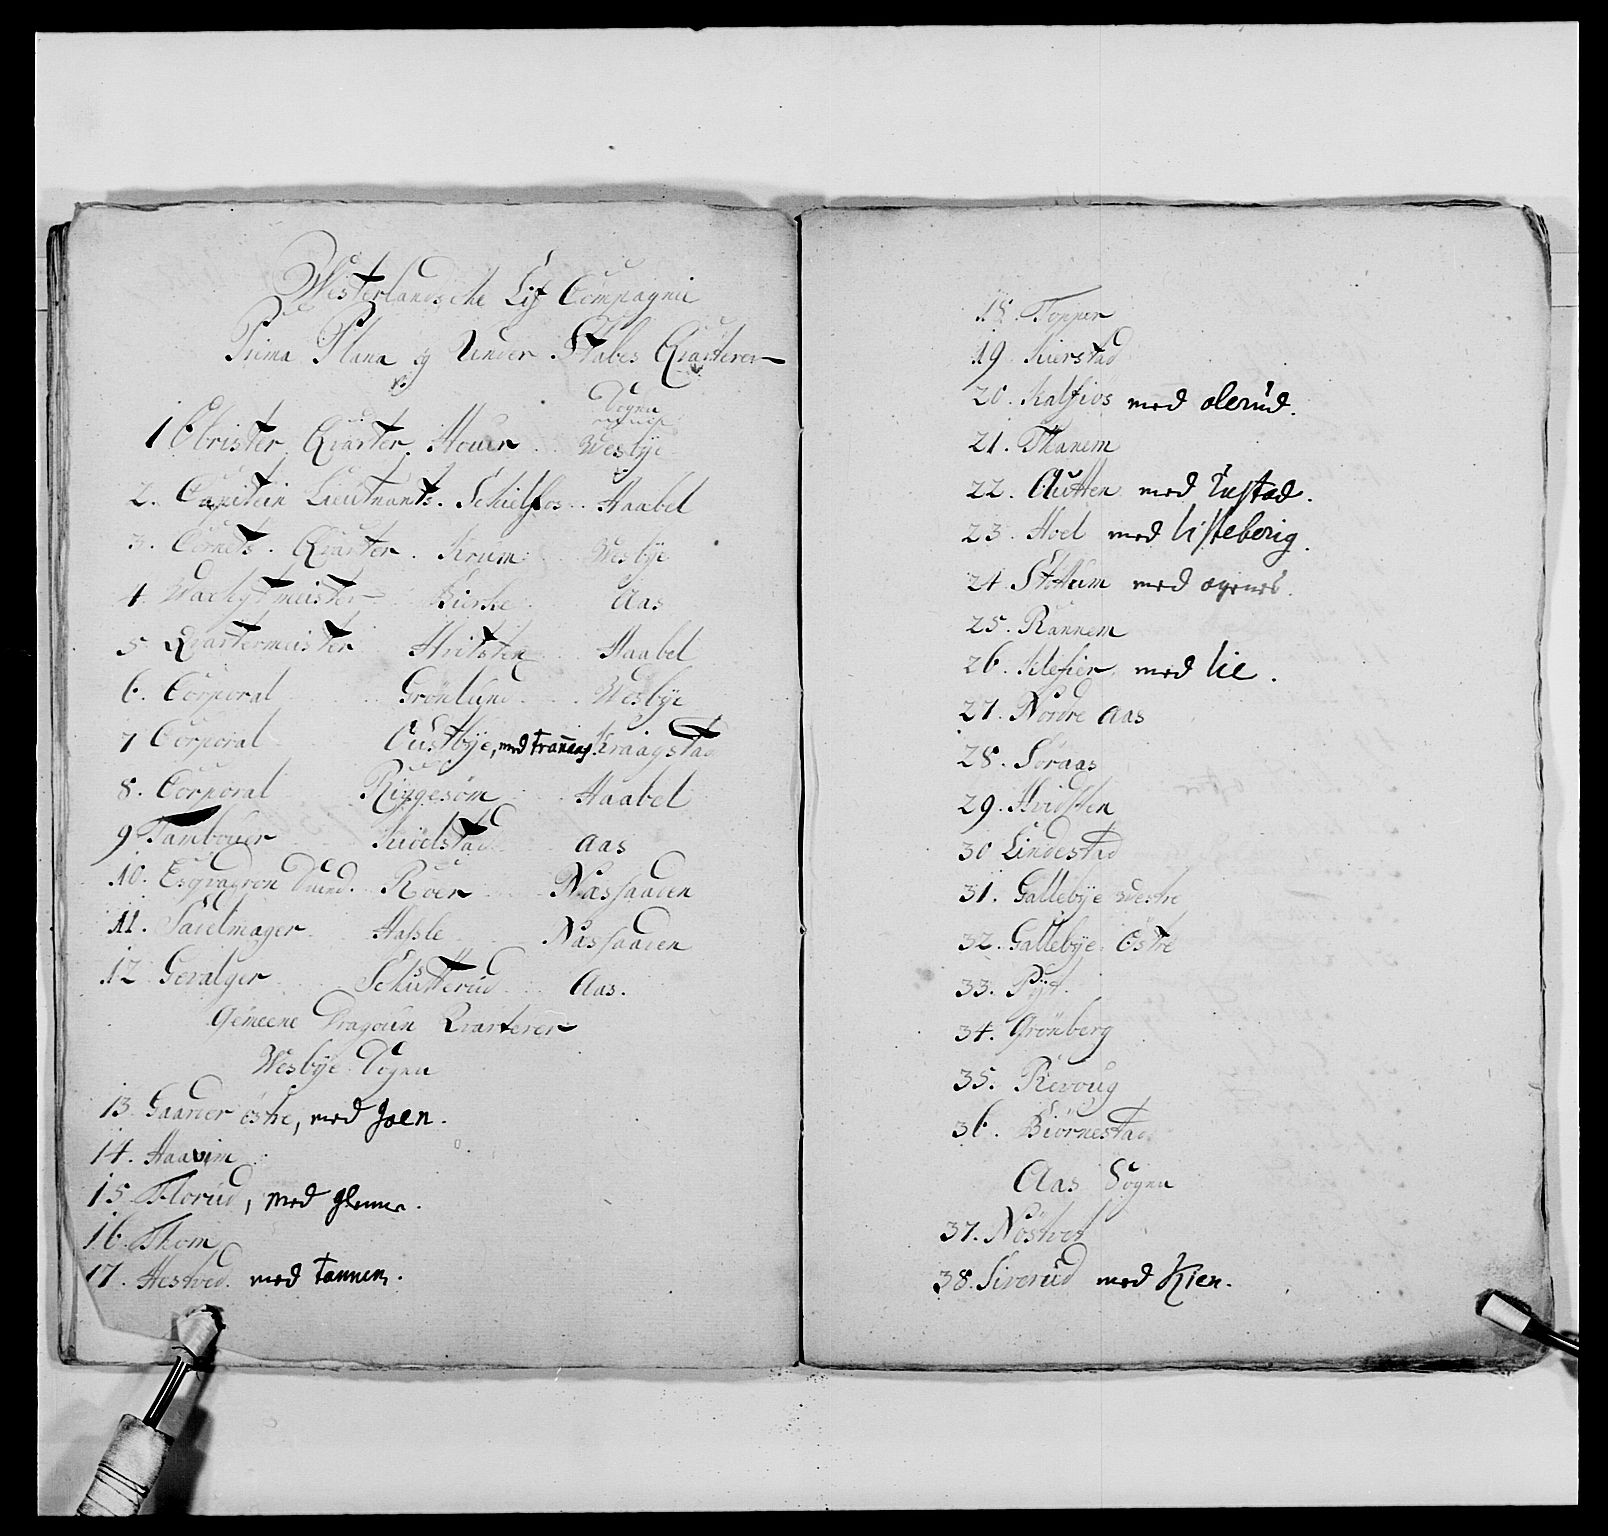 Westerlandsche Lif Compagnie
Prima Plana og Under Stabes Qvarterer
Sogne
1 Obrister Qvarter. Houer Wesbye
2. Capitein Lieutnants. Schielfos Haabel
3. Cornets. Qvarter. Krum Wesbye
4. Wachtmeister Bierke Aas
5 Qvartermeister Hvitsten Haabel
6. Corporal Grönlund Wesbye
7 Corporal Oustbye, med Kraagstad
8. Corporal Ringesom Haabel
9 Tambouer Kidelstad Aas
10. Esqvadron Roer Næssaaden
11. Sadelmager Hasle Næssaaden
12 Gevalger Schutterud Aas.
Gemeene Dragoun Qvarterer
Wesbye Sogne
13 Gaarder östre, med Joen.
14. Haavim
15 Florud, med glenne.
16. Thom
17. Hestved. med tannem.
18. Topper
19. Kierstad
20. Kalfios med olerud.
21. Thanem
22. Autten med Rustad.
23. Hoel med listeborig.
24. Stottum med
25. Rannem
26. Klefier. med lie.
27. Nordre Aas
28. Söraas
29. Hvidsten
30 Lindestad
31. Gallebye Westre
42. Gallebye Östre
33. Pyt.
34. Grönberg
35. Revoug
36. Biörnestad
Aas Sogne
37. Nöstvet
38. Siverud med Kien.